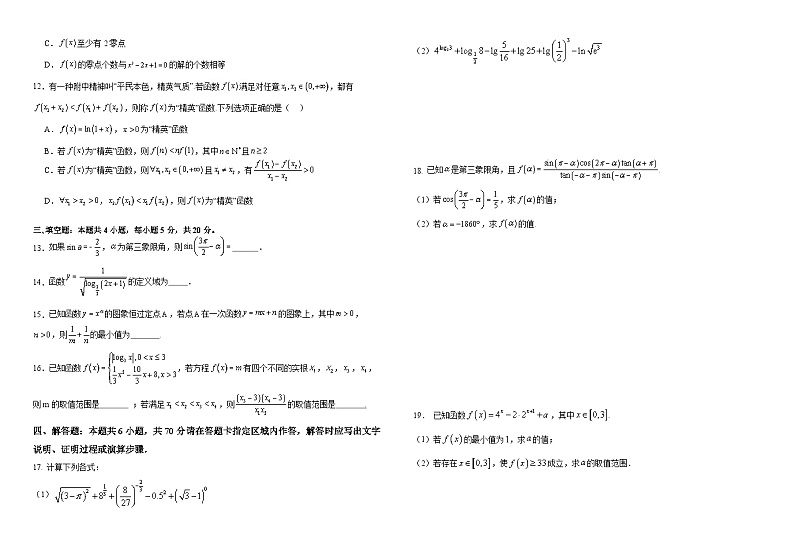 C．f(x)至少有2零点
D．f(x)的零点个数与x²−2x+1=0的解的个数相等
12．有一种附中精神叫“平民本色，精英气质”.若函数f(x)满足对任意x₁,x₂∈(0,+∞)，都有
f(x₁+x₂)<f(x₁)+f(x₂)，则你f(x)为“精英”函数.下列选项正确的是（ ）
A．f(x)=ln(1+x)，x>0为“精英”函数
B．若f(x)为“精英”函数，则f(n)<nf(1)，其中n∈N*且n≥2
C．若f(x)为“精英”函数，则∀x₁,x₂∈(0,+∞)且x₁≠x₂，有(f(x₁)−f(x₂))/(x₁−x₂)>0
D．∀x₁>x₂>0，x₂f(x₁)<x₁f(x₂)，则f(x)为“精英”函数
三、填空题：本题共4小题，每小题5分，共20分。
13．如果sin α=-2/3，α为第三象限角，则sin(3π/2−α)=______．
14．函数y=1/√(log_(1/2)(2x+1))的定义域为_____．
15．已知函数y=xᵅ的图象恒过定点A，若点A在一次函数y=mx+n的图象上，其中m>0，
n>0，则1/m+1/n的最小值为_______．
16．已知函数f(x)={|log₃x|,0<x≤3；1/3x²−10/3x+8,x>3，若方程f(x)=m有四个不同的实根x₁，x₂，x₃，x₄，
则m的取值范围是_______；若满足x₁<x₂<x₃<x₄，则(x₃−3)(x₄−3)/(x₁x₂)的取值范围是_______．
四、解答题：本题共6小题，共70分请在答题卡指定区域内作答，解答时应写出文字
说明、证明过程或演算步骤．
17．计算下列各式：
（1）√((3−π)²)+8^(1/3)+(8/27)^(−2/3)−0.5²+(√3−1)⁰
（2）4^(log₂3)+log_(1/2)8−lg5/16+lg25+lg(1/2)³−ln√(e³)
18．已知α是第三象限角，且f(α)=sin(π−α)cos(2π−α)tan(α+π)/(tan(−α−π)sin(−α−π))．
（1）若cos(3π/2−α)=1/5，求f(α)的值；
（2）若α=−1860°，求f(α)的值．
19．已知函数f(x)=4ˣ−2·2ˣ⁺¹+a，其中x∈[0,3]．
（1）若f(x)的最小值为1，求a的值；
（2）若存在x∈[0,3]，使f(x)≥33成立，求a的取值范围．